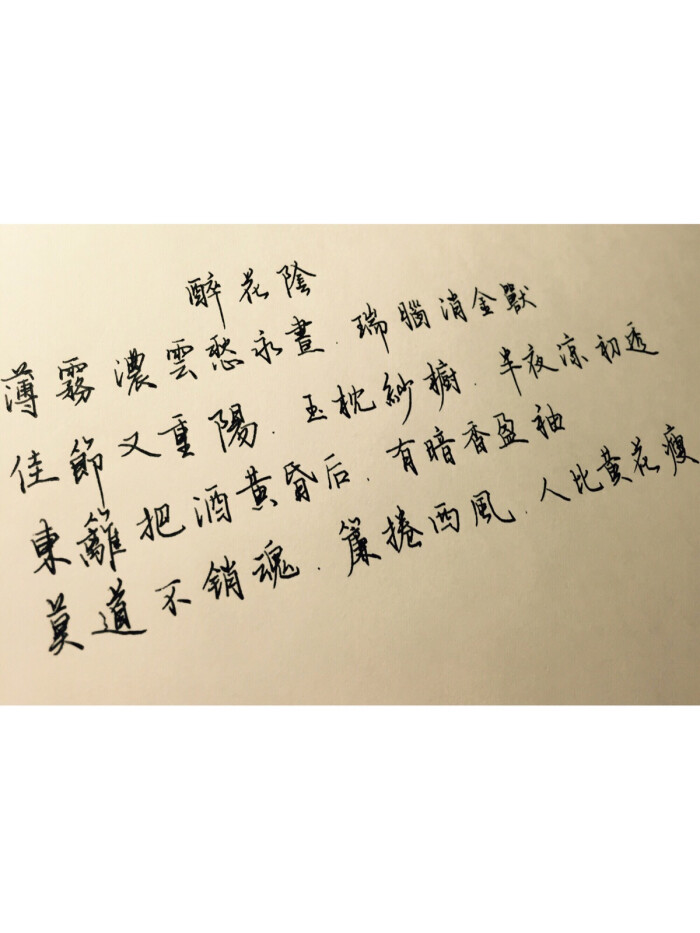 醉花陰
薄霧濃雲愁永晝.瑞腦消金獸
佳節又重陽.玉枕紗櫥.半夜涼初透
東籬把酒黃昏后.有暗香盈袖
莫道不销魂.簾捲西風.人比黃花瘦